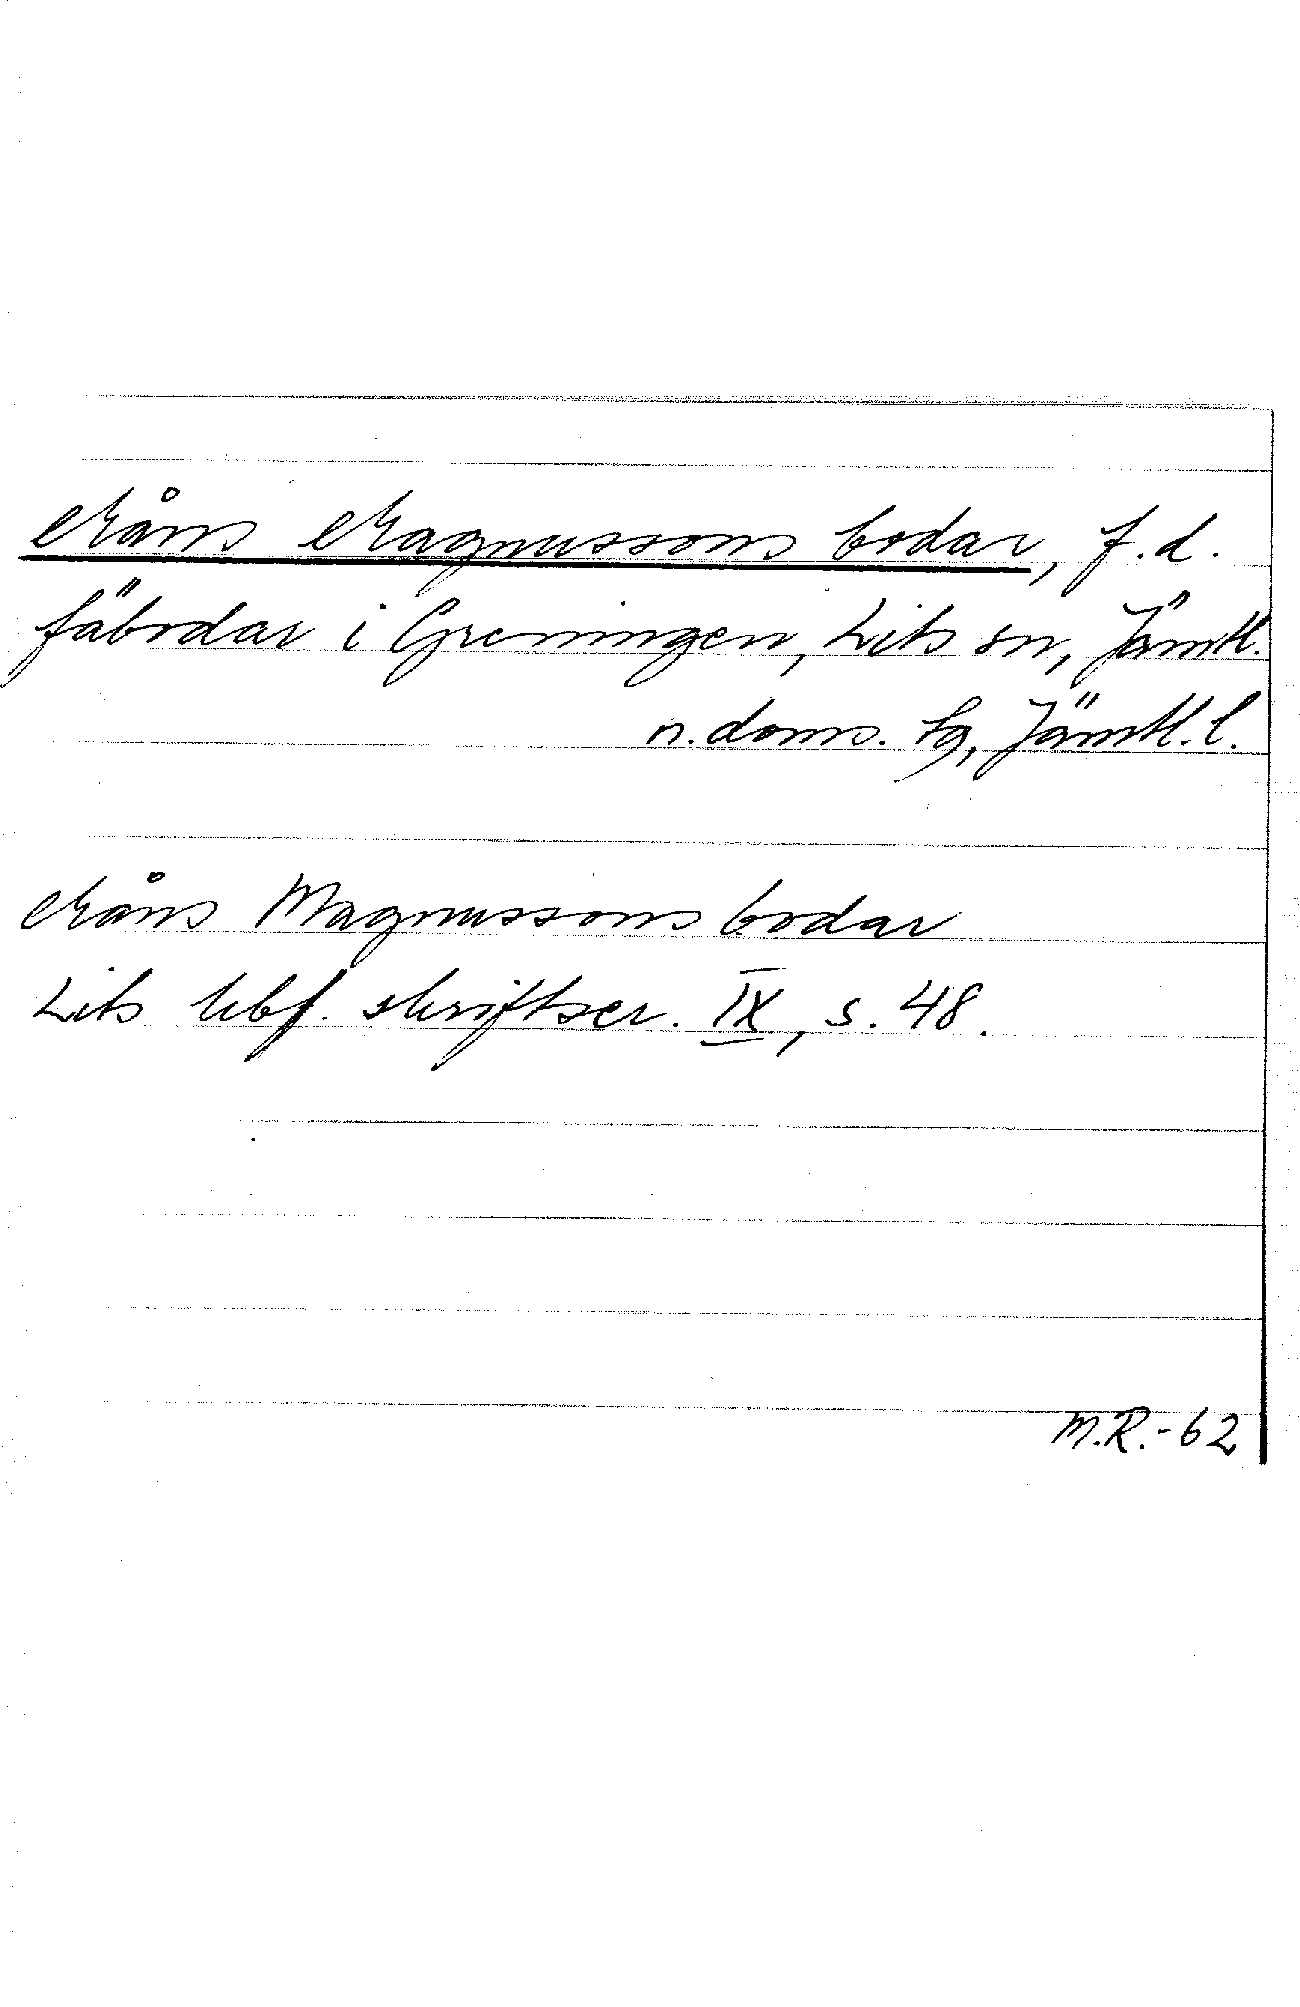 Måns Magnussons bodar, f.d.
fäbodar i Greningen, Lits sn, Jämtl.
n. doms. tg, Jämtl. l.
Måns Magnussons bodar
Lits hbf. skriftser. IX, s. 48.
M.R.-62